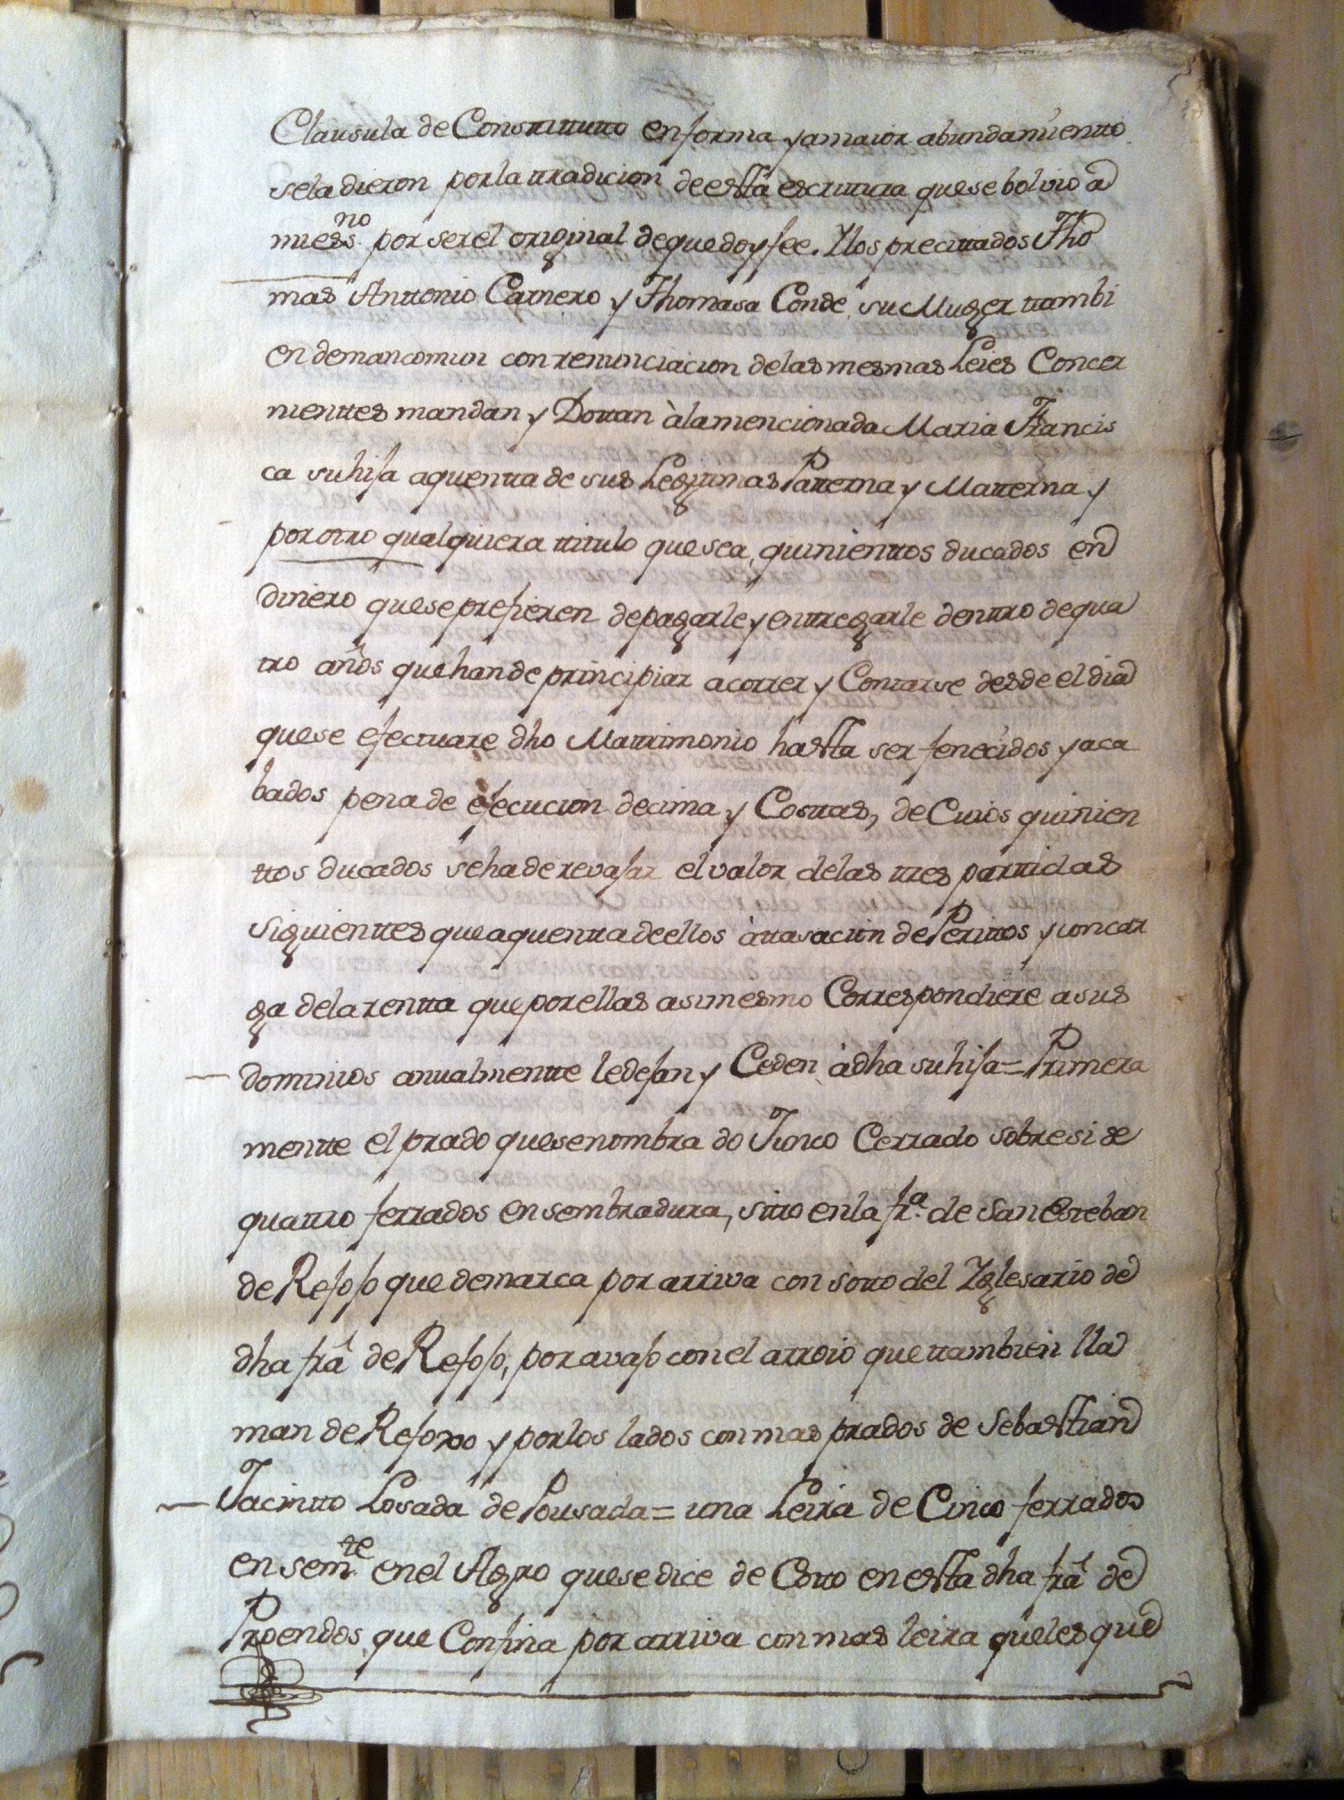 Clausula de Constitutto en forma y amaior abundamientto
sela dieron por la tradicion de esta escritura que se bolvio a
mi esSno por ser el original de que doy fee. Ylos precitados Tho
mas Anttonio Carnero y Thomasa Conde su Muger ttambi
en de mancomun con renunciacion de las mesmas Leies Concer
nienttes mandan y Dottan à la mencionada Maria Francis
ca su hija a quentta de sus Legitimas Patterna y Matterna y
por otro qualquiera titulo que sea, quinienttos ducados en
dinero que se prefieren de pagarle y enttregarle denttro de qua
tro años que han de principiar a correr y Conttarse desde el dia
que se efectuare dho Mattrimonio hasta ser fenecidos y aca
bados pena de ejecucion decima y Costtas, de Cuios quinien
ttos ducados se ha de revajar el valor de las ttres parttidas
siguienttes que a quentta de ellos à ttasacion de Perittos y con car
ga de la rentta que por ellas asimesmo Correspondiere a sus
dominios anualmentte le dejan y Ceden à dha su hija = Primera
mentte el prado que se nombra do Junco Cerrado sobre si de
quattro ferrados en sembradura, sitto en la fra. de San Esteban
de Rejojo que demarca por arriva con sotto del Yglesario de
dha fra de Rejojo, por avajo con el arroio que ttambien lla
man de Rejoxo y por los lados con mas prados de Sebastian
Jacintto Losada de Pousada = una Leira de Cinco ferrados
en semte en el Agro que se dice de Cotto en esta dha fra de
Proendos que Confina por arriva con mas leira que les que